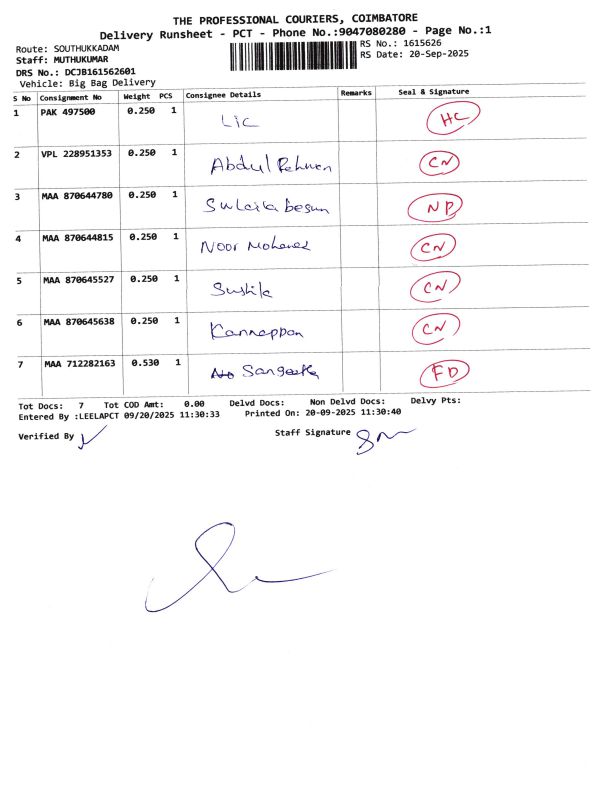 THE PROFESSIONAL COURIERS, COIMBATORE
Delivery Runsheet - PCT - Phone No.:9047080280 - Page No.:1
Route: SOUTHUKKADAM
RS No.: 1615626
Staff: MUTHUKUMAR
RS Date: 20-Sep-2025
DRS No.: DCJB161562601
Vehicle: Big Bag Delivery
S No Consignment No Weight PCS Consignee Details Remarks Seal & Signature
1 PAK 497500 0.250 1 Lic HC
2 VPL 228951353 0.250 1 Abdul Rehman CN
3 MAA 870644780 0.250 1 Suleila begum NP
4 MAA 870644815 0.250 1 Noor Mohamed CN
5 MAA 870645527 0.250 1 Sushila CN
6 MAA 870645638 0.250 1 Kannappan CN
7 MAA 712282163 0.530 1 Sangeetha FD
Tot Docs: 7 Tot COD Amt: 0.00 Delvd Docs: Non Delvd Docs: Delvy Pts:
Entered By :LEELAPCT 09/20/2025 11:30:33 Printed On: 20-09-2025 11:30:40
Verified By
Staff Signature